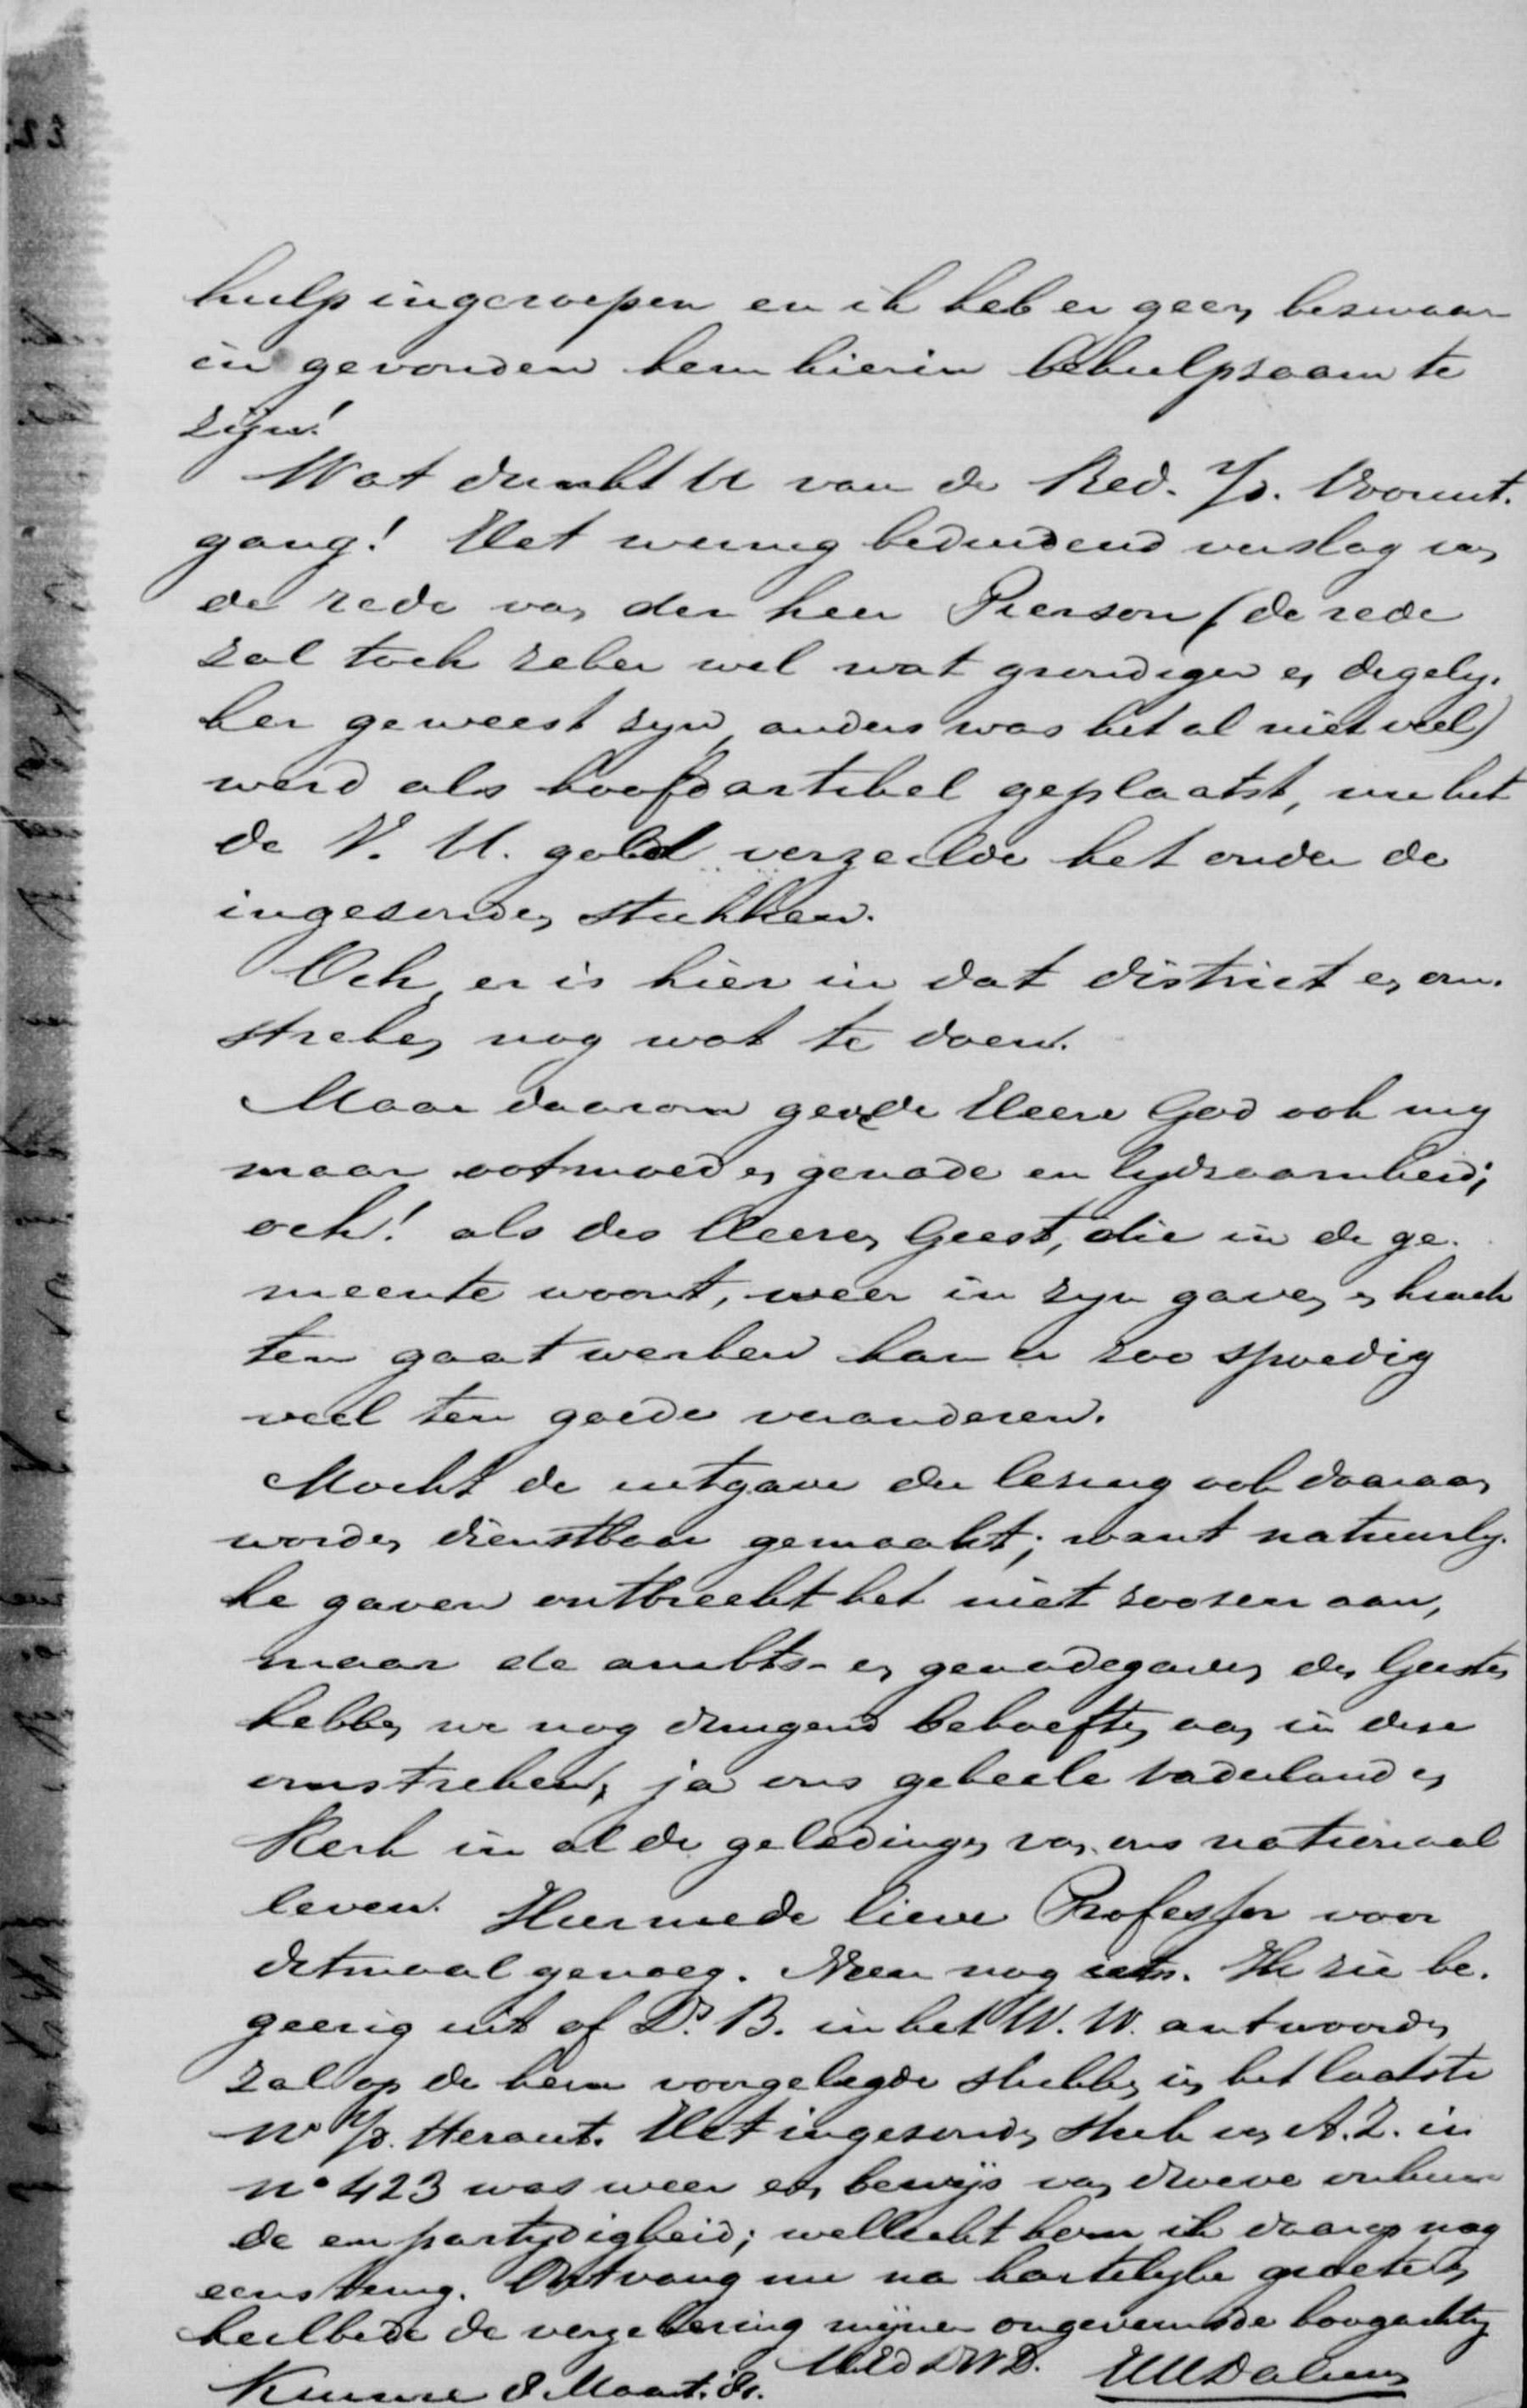 hulp ingeroepen en ik heb er geen bezwaar
in gevonden hem hierin behulpzaam te
zijn!
Wat dunkt U van de Red. v/d. Vooruit.
gang! Het weinig beduidend verslag van
de rede van den heer Pierson (de rede
zal toch zeker wel wat grondiger en degely.
ker geweest zyn, anders was het al niet veel)
werd als hoofdartikel geplaatst, nu het
de V. U. gold verzeilde het onder de
ingezonden stukken.
Och, er is hier in dat district en om.
streken nog wat te doen.
Maar daarom geve de Heere God ook my
maar ootmoed en genade en lydzaamheid;
och! als des Heeren Geest, die in de ge.
meente woont, weer in zyn gaven en krach
ten gaat werken kan er zoo spoedig
veel ten goede veranderen.
Mocht de uitgave der lezing ook daaraan
worden dienstbaar gemaakt; want natuurly.
ke gaven ontbreekt het niet zoozeer aan,
maar de ambts- en genadegaven des Geestes
hebben we nog dringend behoefte aan in deze
omstreken, ja ons geheele vaderland en
Kerk in al de geledingen van ons nationaal
leven. Hiermede lieve Professor voor
ditmaal genoeg. Neen nog iets. Ik zie be.
geerig uit of Ds. B. in het W. W. antwoorden
zal op de hem voorgelegde stukken in het laatste
No v/d. Heraut. Het ingezonden stuk van A. Z. in
no 423 was weer een bewijs van droeve onkun
de en partydigheid; wellicht kom ik daarop nog
eens terug. Ontvang nu na hartelyke groete en
heilbede de verzekering mijner ongeveinsde hoogachting
Kuinre 8 Maart. UEd DWD.